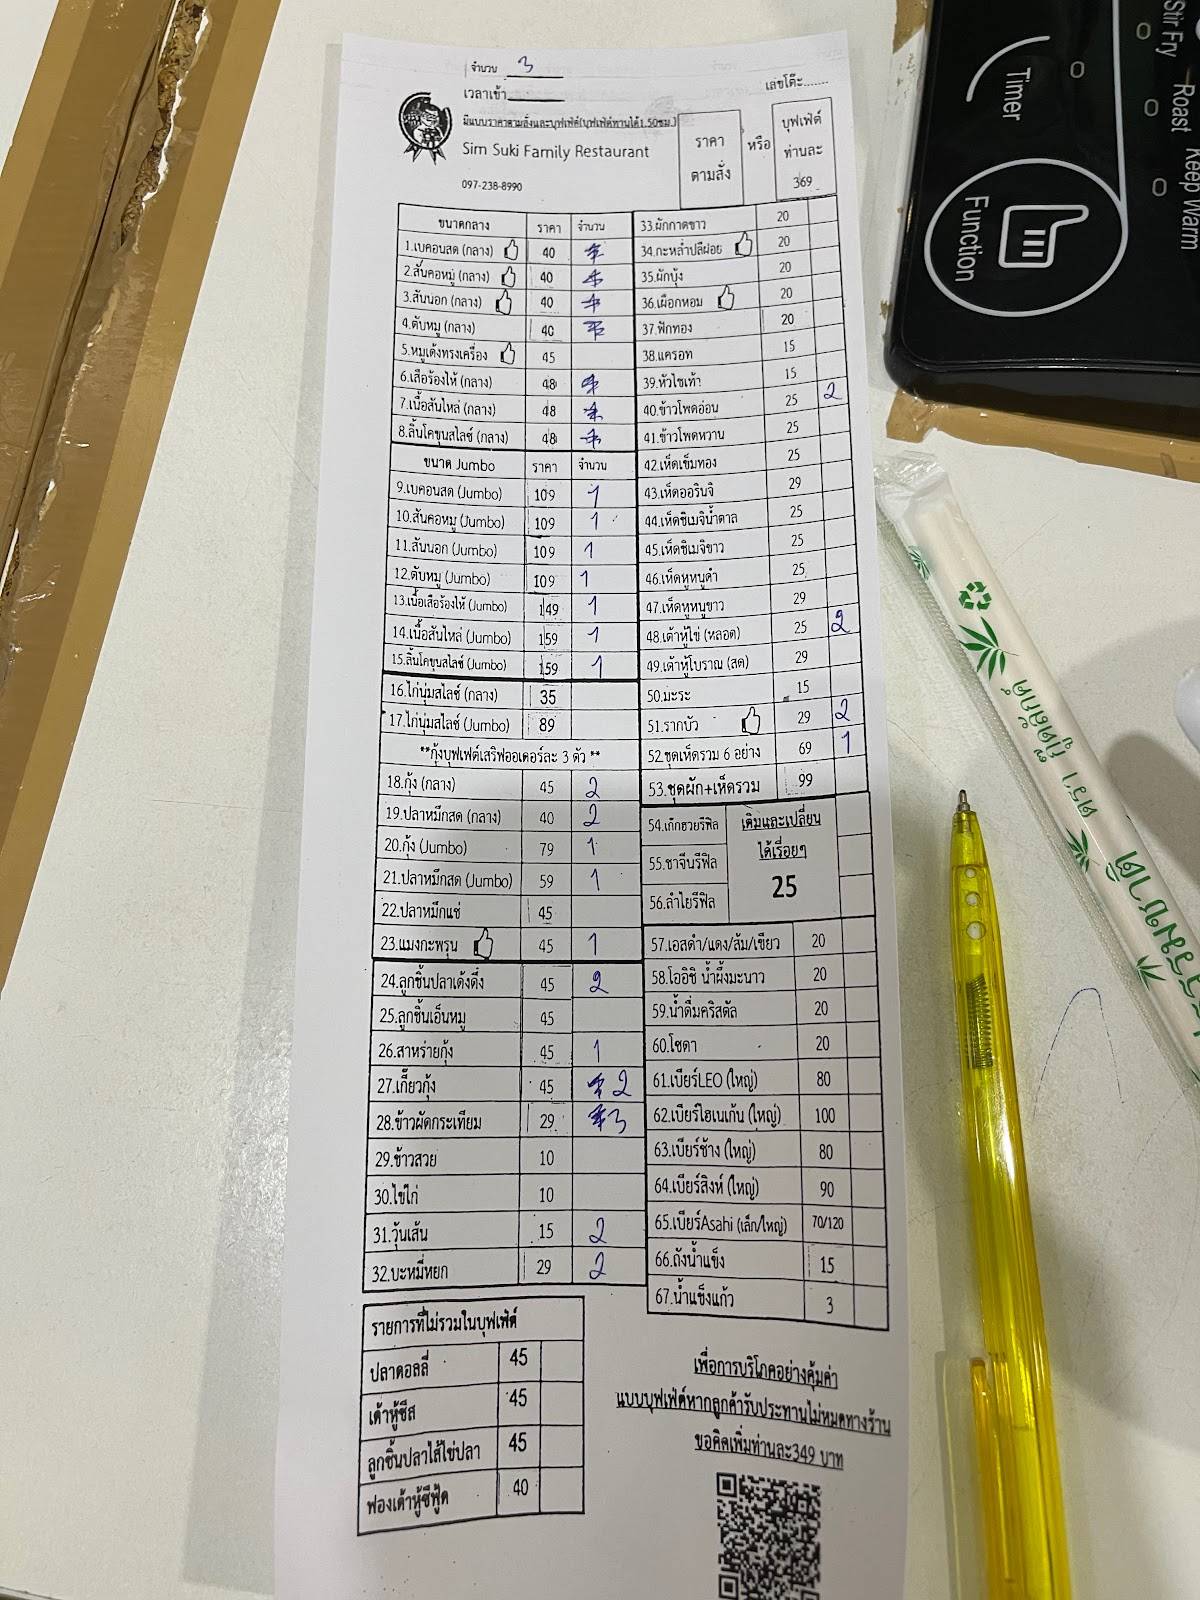 จำนวน 3
เวลาเข้า
เลขโต๊ะ.......
มีแบบราคาตามสั่งและบุฟเฟ่ต์(บุฟเฟ่ต์ทานได้1.50ชม.)
Sim Suki Family Restaurant
097-238-8990
ราคา
ตามสั่ง
หรือ
บุฟเฟ่ต์
ท่านละ
369
ขนาดกลาง ราคา จำนวน
1.เบคอนสด (กลาง) 40
2.สันคอหมู (กลาง) 40
3.สันนอก (กลาง) 40
4.ตับหมู (กลาง) 40
5.หมูเด้งทรงเครื่อง 45
6.เสือร้องไห้ (กลาง) 48
7.เนื้อสันไหล่ (กลาง) 48
8.ลิ้นโคขุนสไลซ์ (กลาง) 48
ขนาด Jumbo ราคา จำนวน
9.เบคอนสด (Jumbo) 109 1
10.สันคอหมู (Jumbo) 109 1
11.สันนอก (Jumbo) 109 1
12.ตับหมู (Jumbo) 109 1
13.เนื้อเสือร้องไห้ (Jumbo) 149 1
14.เนื้อสันไหล่ (Jumbo) 159 1
15.ลิ้นโคขุนสไลซ์ (Jumbo) 159 1
16.ไก่นุ่มสไลซ์ (กลาง) 35
17.ไก่นุ่มสไลซ์ (Jumbo) 89
**กุ้งบุฟเฟ่ต์เสริฟออเดอร์ละ 3 ตัว **
18.กุ้ง (กลาง) 45 2
19.ปลาหมึกสด (กลาง) 40 2
20.กุ้ง (Jumbo) 79 1
21.ปลาหมึกสด (Jumbo) 59 1
22.ปลาหมึกแช่ 45
23.แมงกะพรุน 45 1
24.ลูกชิ้นปลาเด้งดึ๋ง 45 2
25.ลูกชิ้นเอ็นหมู 45
26.สาหร่ายกุ้ง 45 1
27.เกี๊ยวกุ้ง 45 2
28.ข้าวผัดกระเทียม 29 3
29.ข้าวสวย 10
30.ไข่ไก่ 10
31.วุ้นเส้น 15 2
32.บะหมี่หยก 29 2
รายการที่ไม่รวมในบุฟเฟ่ต์
ปลาดอลลี่ 45
เต้าหู้ชีส 45
ลูกชิ้นปลาไส้ไข่ปลา 45
ฟองเต้าหู้ซีฟู้ด 40
33.ผักกาดขาว 20
34.กะหล่ำปลีฝอย 20
35.ผักบุ้ง 20
36.เผือกหอม 20
37.ฟักทอง 20
38.แครอท 15
39.หัวไชเท้า 15
40.ข้าวโพดอ่อน 25 2
41.ข้าวโพดหวาน 25
42.เห็ดเข็มทอง 25
43.เห็ดออรินจิ 29
44.เห็ดชิเมจิน้ำตาล 25
45.เห็ดชิเมจิขาว 25
46.เห็ดหูหนูดำ 25
47.เห็ดหูหนูขาว 29
48.เต้าหู้ไข่ (หลอด) 25 2
49.เต้าหู้โบราณ (สด) 29
50.มะระ 15
51.รากบัว 29 2
52.ชุดเห็ดรวม 6 อย่าง 69 1
53.ชุดผัก+เห็ดรวม 99
54.เก๊กฮวยรีฟิล
55.ชาจีนรีฟิล
56.ลำไยรีฟิล
เติมและเปลี่ยน
ได้เรื่อยๆ
25
57.เอสดำ/แดง/ส้ม/เขียว 20
58.โออิชิ น้ำผึ้งมะนาว 20
59.น้ำดื่มคริสตัล 20
60.โซดา 20
61.เบียร์LEO (ใหญ่) 80
62.เบียร์ไฮเนเก้น (ใหญ่) 100
63.เบียร์ช้าง (ใหญ่) 80
64.เบียร์สิงห์ (ใหญ่) 90
65.เบียร์Asahi (เล็ก/ใหญ่) 70/120
66.ถังน้ำแข็ง 15
67.น้ำแข็งแก้ว 3
เพื่อการบริโภคอย่างคุ้มค่า
แบบบุฟเฟ่ต์หากลูกค้ารับประทานไม่หมดทางร้าน
ขอคิดเพิ่มท่านละ349 บาท
Timer
Function
Stir Fry
Roast
Keep Warm